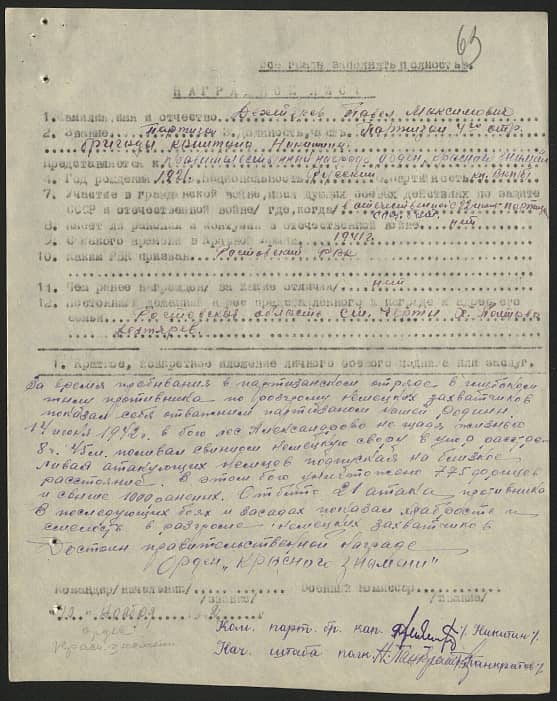 63
все графы заполнять полностью.
НАГРАДНОЙ ЛИСТ
1. Фамилия, имя и отчество Павел Максимович
2. Звание Партизан 3. Должность, часть Партизан
бригады капитана Никитина
Представляется к правительственной награде орден "Красное знамя"
4. Год рождения 1921. Национальность Русский Партийность ВЛКСМ
7. Участие в гражданской войне, последующих боевых действиях по защите
СССР и отечественной войне/где, когда/ в отечественной с
8. Имеет ли ранения и контузии в отечественной войне нет
9. С какого времени в Красной Армии 1941 г.
10. Каким РВК призван Ростовский РВК
11. Чем ранее награжден/за какие отличия/ нет
12. Постоянный домашний адрес представляемого к награде и адрес его
семьи Ростовская область ст. х. Полтава
1. Краткое, конкретное изложение личного боевого подвига или заслуг.
За время пребывания в партизанском отряде в глубоком
тылу противника по разгрому немецких захватчиков
показал себя отважным партизаном нашей Родины.
14 июня 1942 г. в бою лес Александрово не щадя жизни
8 ч. 45 м. поливал свинцом немецкую свору в упор расстре-
ливая атакующих немцев подпуская на близкое
расстояние. В этом бою уничтожено 775 фрицев
и свыше 1000 ранених. Отбито 21 атака противника
В последующих боях и засадах показал храбрость и
смелость в разгроме немецких захватчиков
Достоин правительственной награде
Орден "Красного знамени"
Командир/начальник/ Военный комиссар
/звание/ /звание/
ноября
орден
Красн. знамени
Ком. парт. бр. кап. /Никитин/.
Нач. штаба полк. /Панкратов/